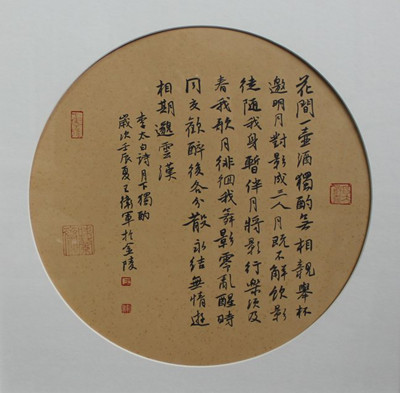 花間一壺酒獨酌无相親舉杯
邀明月對影成三人月既不解飲影
徒隨我身暫伴月將影行樂須及
春我歌月徘徊我舞影零亂醒時
同交歡醉後各分散永結無情遊
相期邈雲漢
李太白诗月下獨酌
歲次壬辰夏王衛軍於金陵